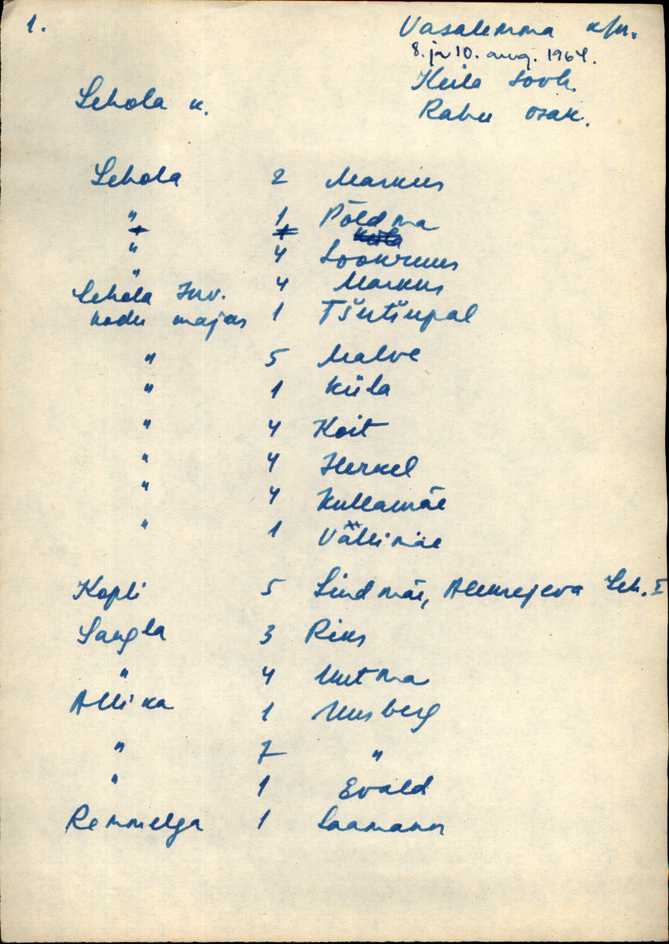 1.
Vasalemma k/n.
8. ja 10. aug. 1964.
Keila sovh.
Lehola k.
Rahu osak.
Lehola 2 Markus
" 1 Põldma
" 4 Sookruus
" 4 Markus
Lehola Inv.
kodu majas 1 Tšutšupal
" 5 Malve
" 1 Küla
" 4 Koit
" 4 Herkel
" 4 Kullamäe
" 1 Vällimäe
Kopli 5 Lindmäe, Aleksejeva Leh. I
Sangla 3 Riks
" 4 Uutma
Allika 1 Uusberg
" 7 "
" 1 Evald
Remmelga 1 Saamann